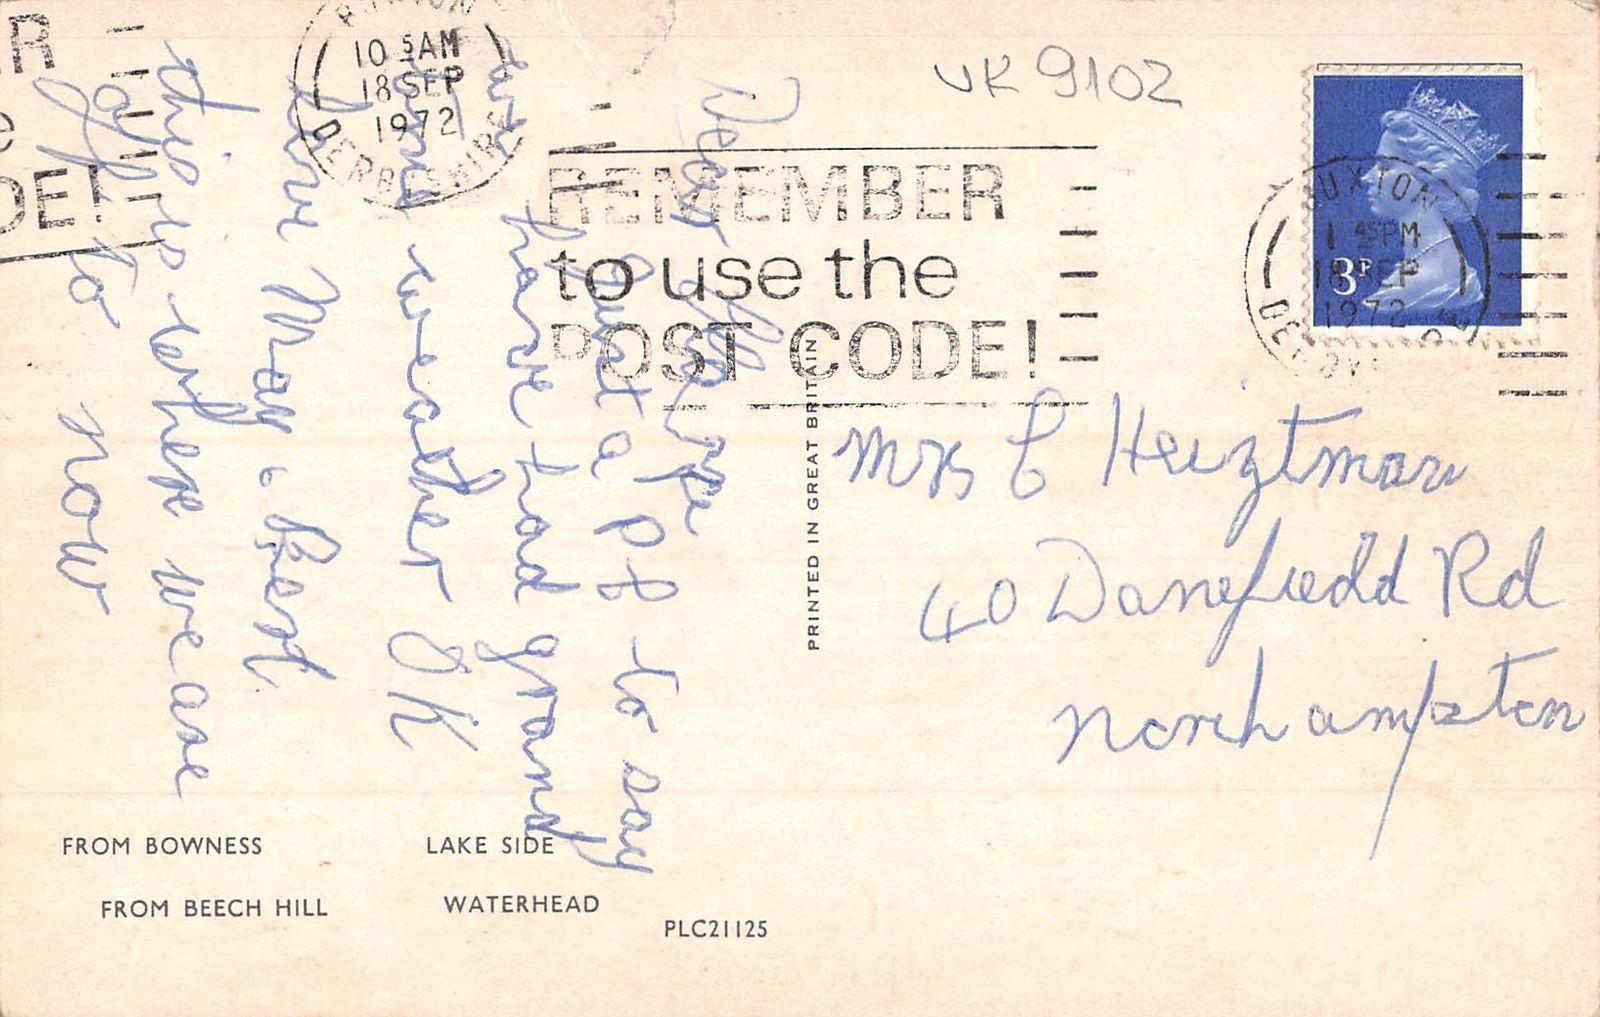 UK 9102
BUXTON
10 5AM
18 SEP
1972
DERBYSHIRE
REMEMBER
to use the
POST CODE!
BUXTON
1 45PM
18 SEP
1972
3P
Dear
Just a PC to say
have had grand
weather OK
May. Best
this is where we are
off to
now
Mrs C Heiztman
40 Danefield Rd
Northampton
PRINTED IN GREAT BRITAIN
FROM BOWNESS
LAKE SIDE
FROM BEECH HILL
WATERHEAD
PLC21125